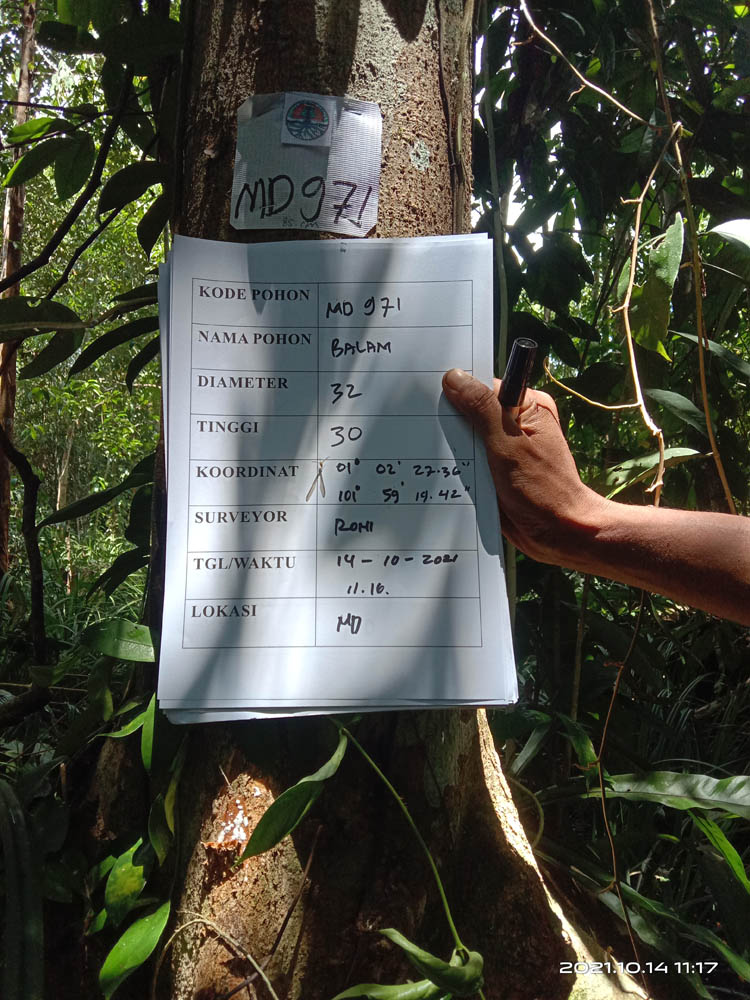 MD 971
KODE POHON MD 971
NAMA POHON BALAM
DIAMETER 32
TINGGI 30
KOORDINAT 01° 02' 27.36"
101° 59' 19.42"
SURVEYOR ROMI
TGL/WAKTU 14-10-2021
11.16.
LOKASI MD
2021.10.14 11:17